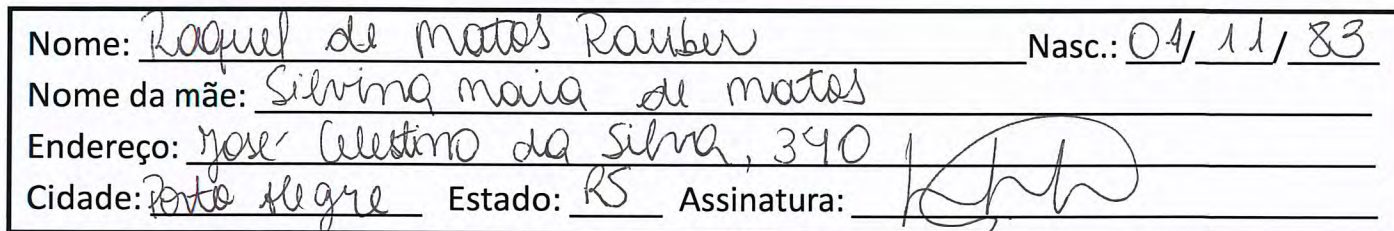 Nome: Raquel de Matos Rauber Nasc.: 01/11/83
Nome da mãe: Silvina Maia de Matos
Endereço: José Celestino da Silva, 340
Cidade: Porto Alegre Estado: RS Assinatura: